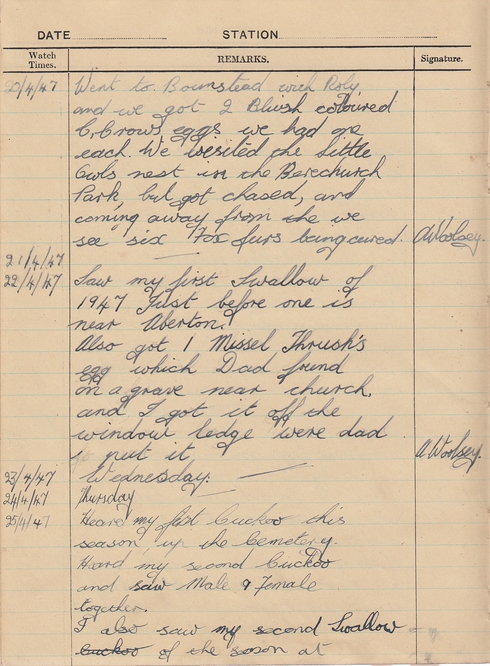 DATE STATION
Watch Times. REMARKS. Signature.
20/4/47 Went to Bounstead with Roly
and we got 2 Bluish coloured
C, Crows eggs we had one
each. We visited the Little
Owls nest in the Berechurch
Park, but got chased, and
coming away from the we
see six Fox furs being cured. A Woolsey.
21/4/47 —
22/4/47 Saw my first Swallow of
1947 Just before one is
near Aberton.
Also got 1 Missel Thrush's
egg which Dad found
on a grave near church,
and I got it off the
window ledge were dad
put it. A Woolsey.
23/4/47 Wednesday. —
24/4/47 Thursday
25/4/47 Heard my first Cuckoo this
season, up the Cemetery.
Heard my second Cuckoo
and saw Male & Female
together.
I also saw my second Swallow
Cuckoo of the season at